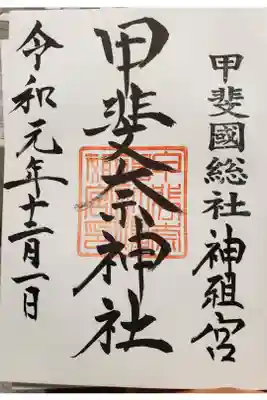 甲斐國総社神祖宮
甲斐奈神社
令和元年十二月一日